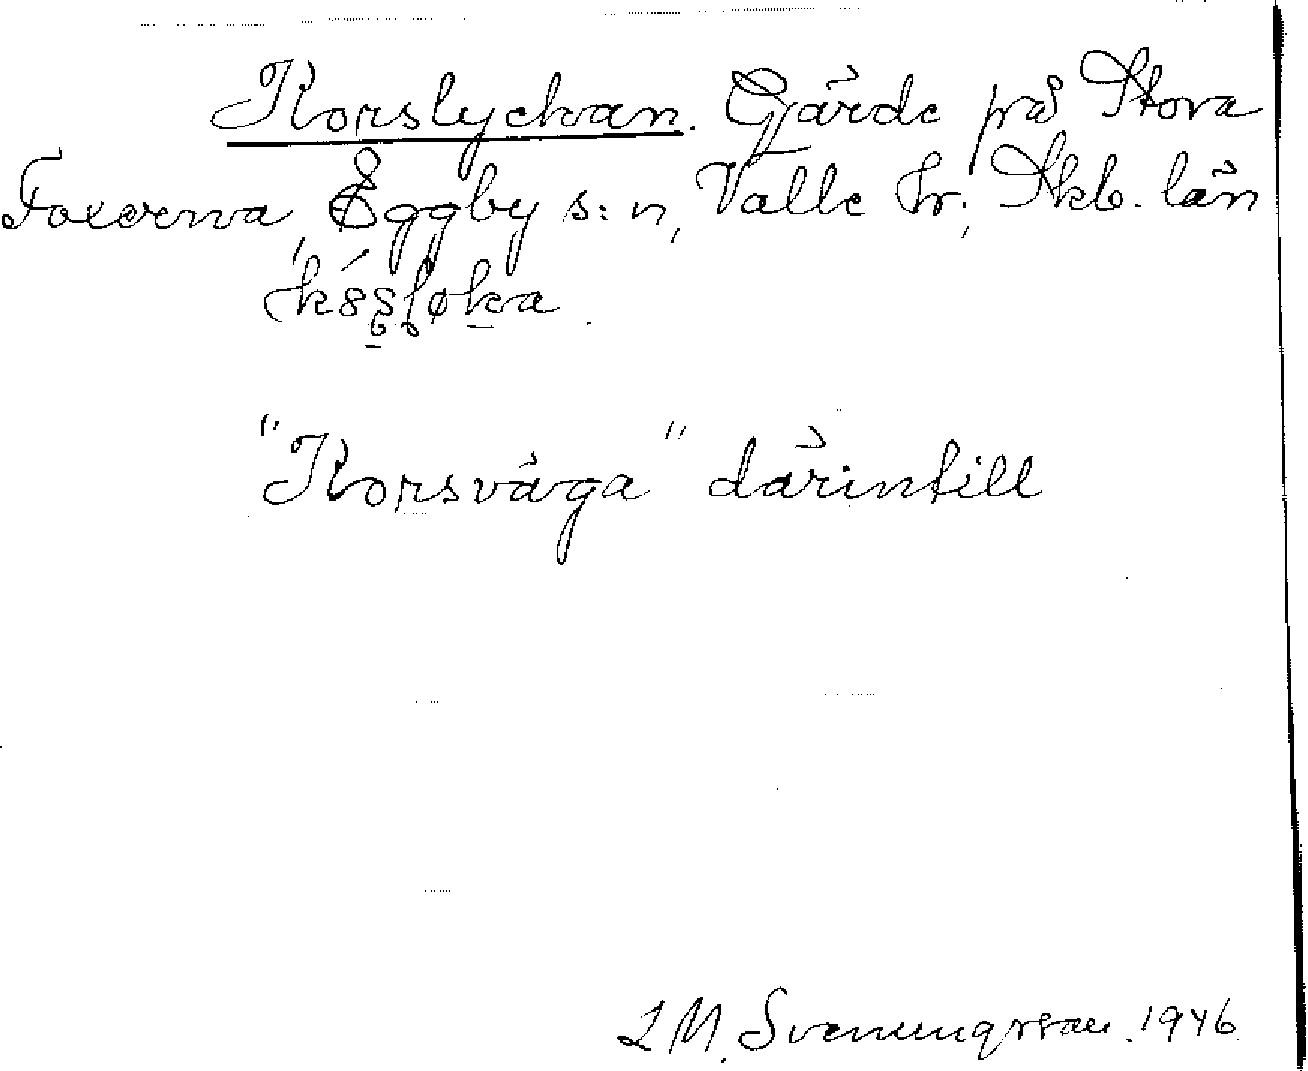 Korslyckan. Gärde på Stora
Foxerna, Eggby s:n, Valle hr., Skb. län

"Korsväga" därintill
L M. Svenungsson. 1946